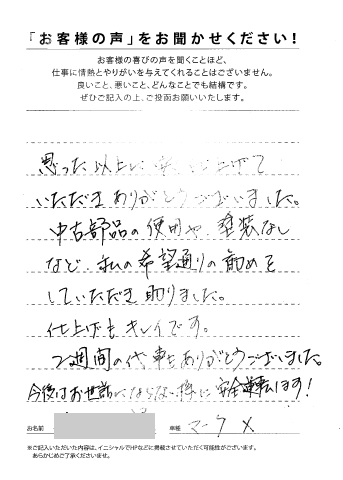 「お客様の声」をお聞かせください！
お客様の喜びの声を聞くことほど、
仕事に情熱とやりがいを与えてくれることはございません。
良いこと、悪いこと、どんなことでも結構です。
ぜひご記入の上、ご投函お願いいたします。
思った以上に 上げて
いただきありがとうございました。
中古部品の使用や、塗装なし
など、私の希望通りの勧めを
していただき助りました。
仕上げもキレイです。
2週間の代車もありがとうございました。
今後はお世話にならない様に安全運転します！
お名前
車種 マークX
※ご記入いただいた内容は、イニシャルでHPなどに掲載させていただく可能性がございます。
あらかじめご了承くださいませ。